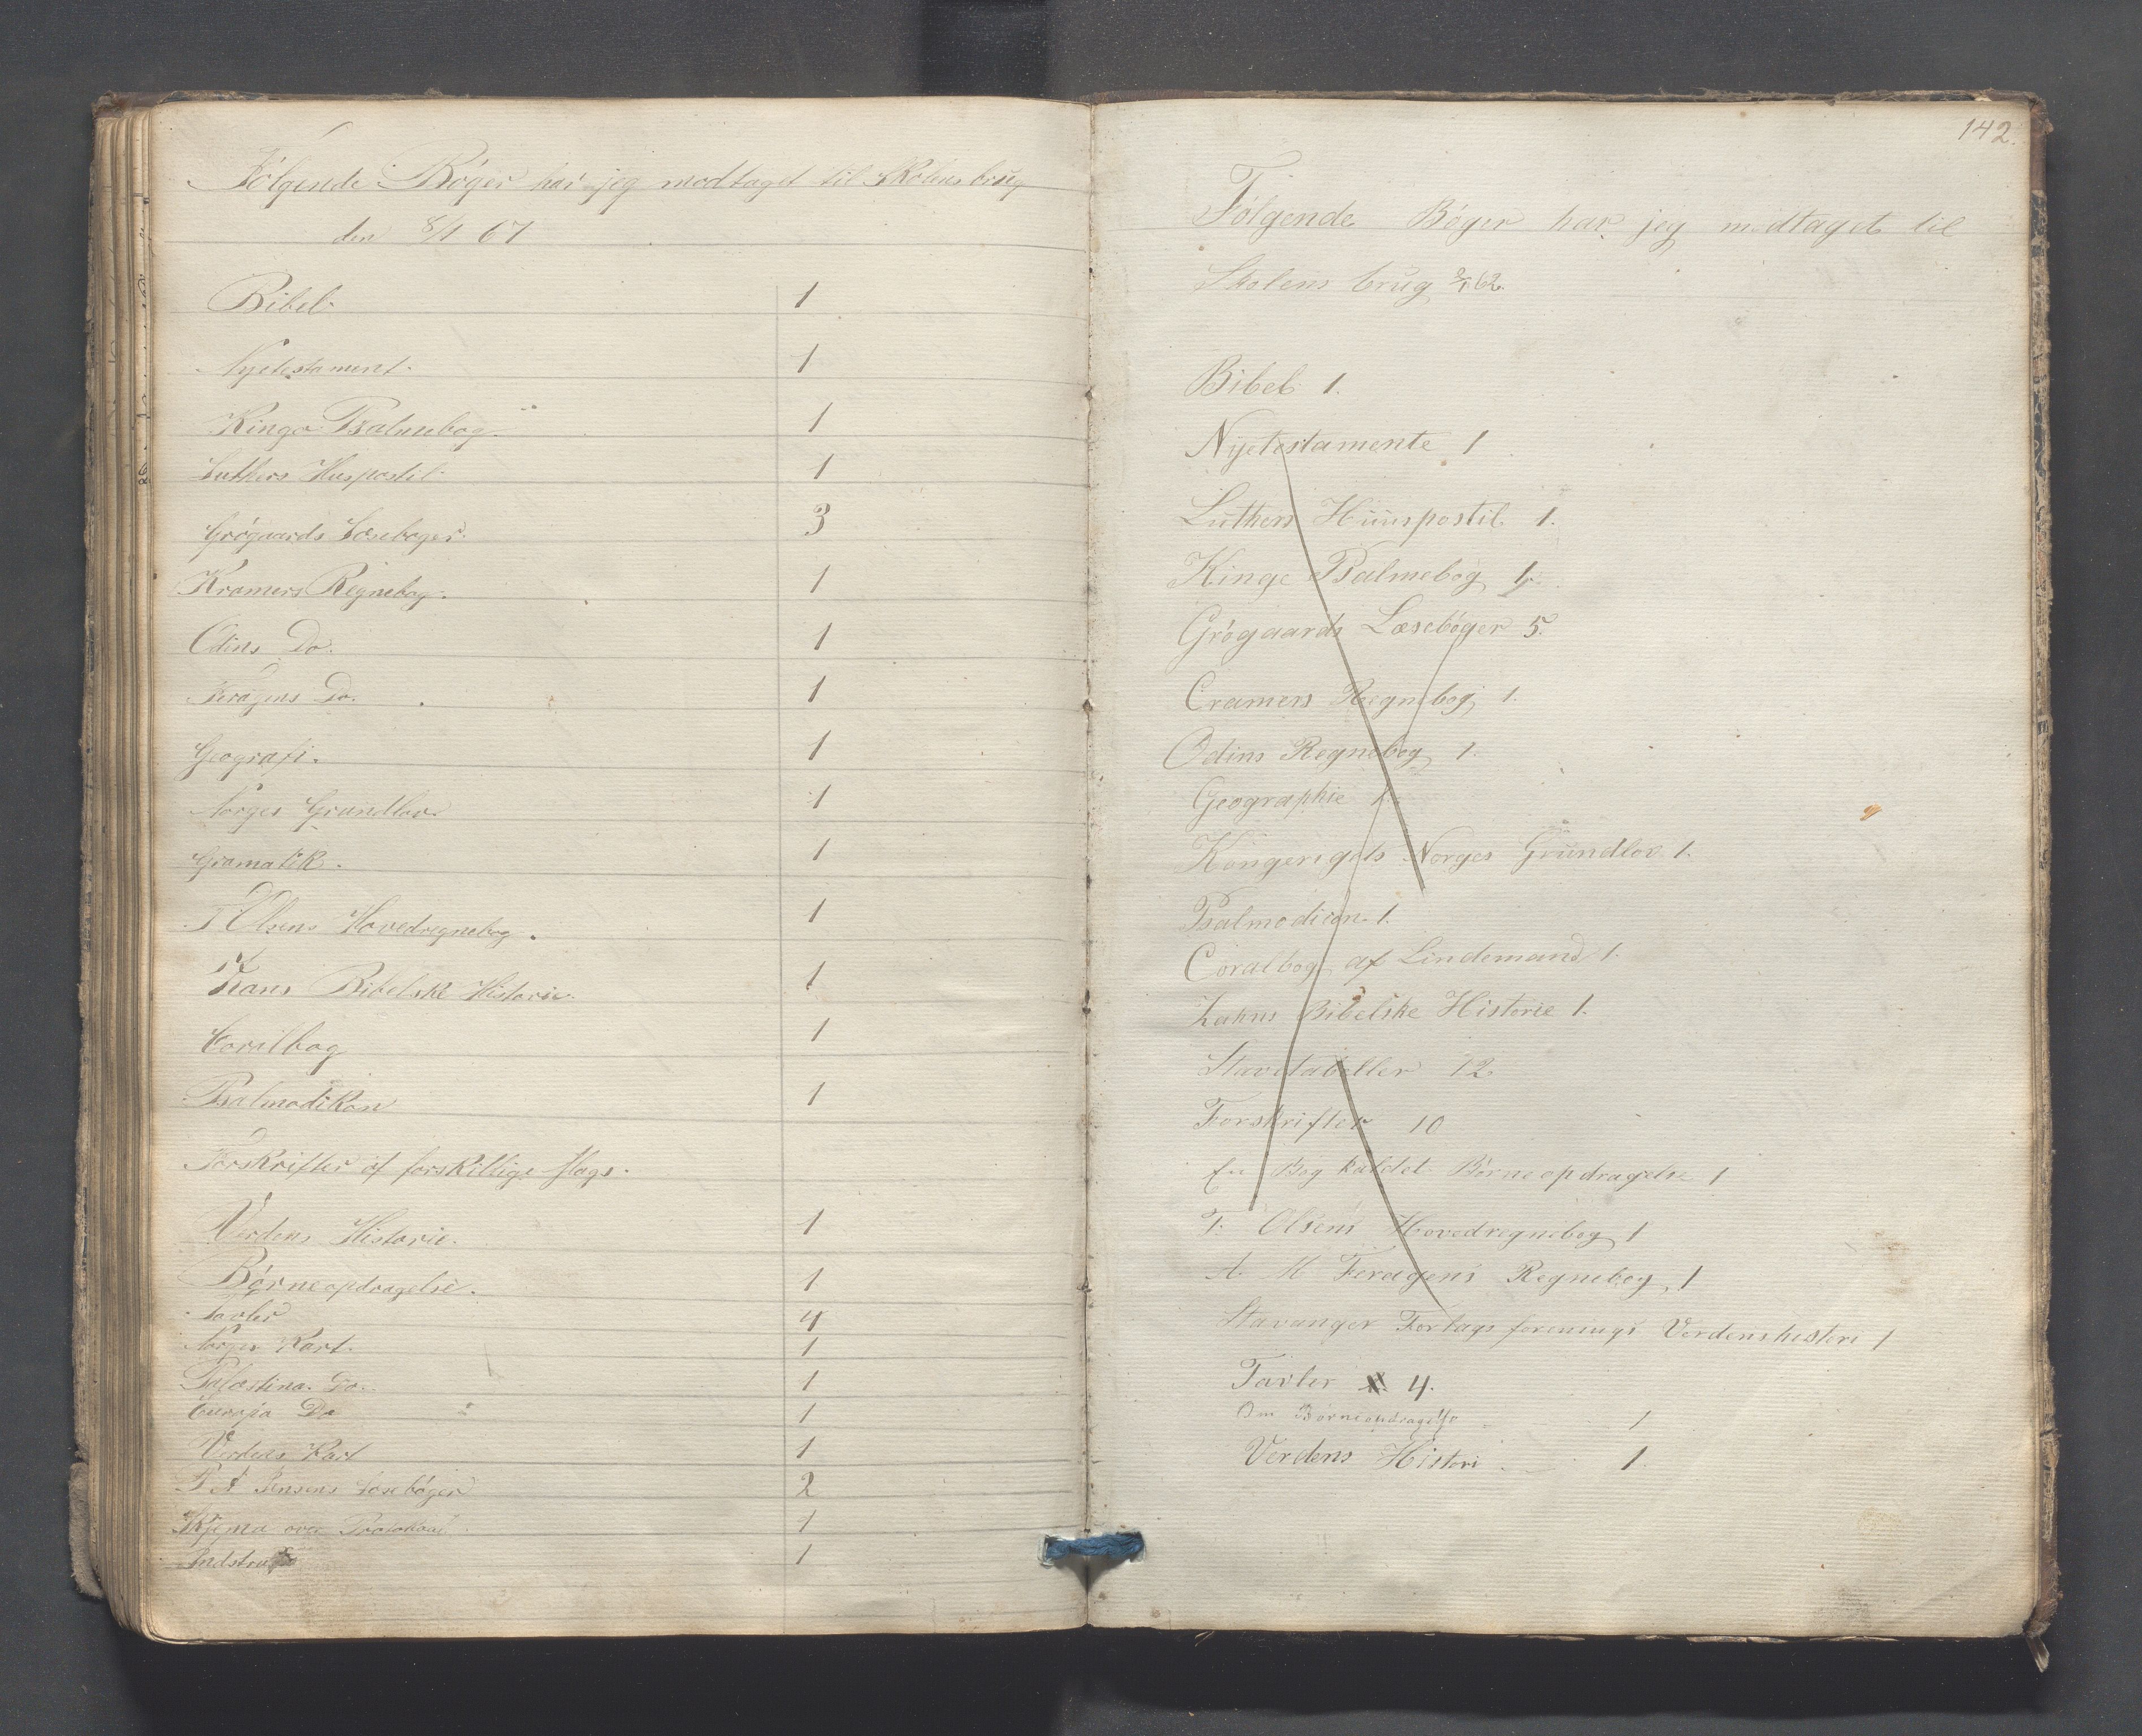 Følgende Bøger har jeg modtaget til Skolens brug
den 8/1 67
Bibel 1
Nyetestament. 1
Kingo Psalmebog. 1
Luthers Huspostil. 1
Grøgaards Læsebøger. 3
Kramers Regnebog. 1
Odins Do. 1
Feragens Do. 1
Geografi. 1
Norges Grundlov 1
Gramatik. 1
T Olsens Hovedregnebog. 1
Zans Bibelske Historie. 1
Coralbog 1
Psalmodikon 1
Forskrifter af forskillige slags.
Verdens Historie. 1
Børneopdragelse. 1
Tavler 4
Norges Kart. 1
Palæstina Do. 1
Europa Do 1
Verdens Kart 1
P A Jensens Læsebøger 2
Skjema over Protokoal 1
1
142.
Følgende Bøger har jeg modtaget til
Skolens brug 2/1 62.
Bibel 1.
Nyetestamente 1
Luthers Huuspostil 1.
Kingo Psalmebog 1.
Grøgaards Læsebøger 5.
Cramers Regnebog 1.
Odins Regnebog 1.
Geographie 1.
Kongerigets Norges Grundlov 1.
Psalmodicon 1.
Coralbog af Lindemand 1.
Zahns Bibelske Historie 1.
Stavetabeller 12
Forskrifter 10
En Bog kaldet Børneopdragelse 1
T. Olsens Hovedregnebog 1
A. M Feragens Regnebog, 1
Stavanger Forlags forenings Verdenshistori 1
Tavler 4.
Om Børneopdragelse 1
Verdens Histori 1.